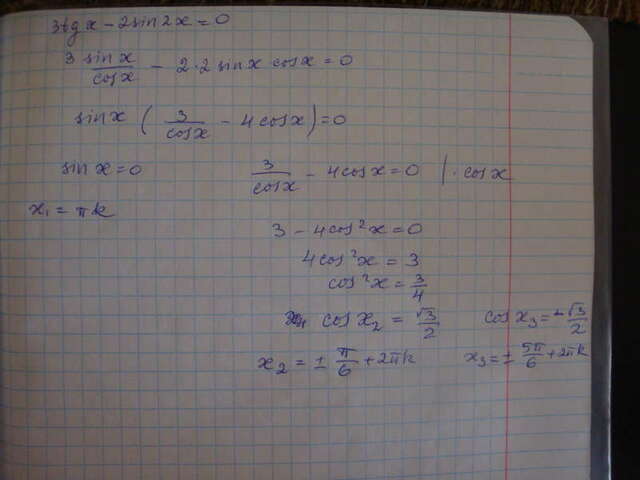 3tgx - 2sin2x = 0
3 sinx/cosx - 2·2sinx cosx = 0
sinx (3/cosx - 4cosx) = 0
sinx = 0    3/cosx - 4cosx = 0 |·cosx
x₁ = πk
3 - 4cos²x = 0
4cos²x = 3
cos²x = 3/4
cosx₂ = √3/2    cosx₃ = -√3/2
x₂ = ± π/6 + 2πk    x₃ = ± 5π/6 + 2πk